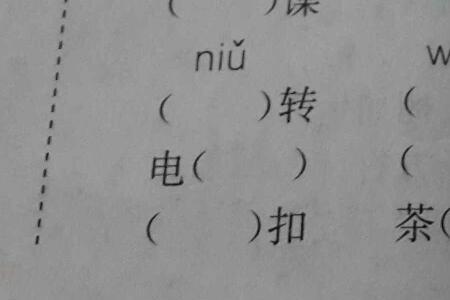 (　　)课
niǔ　　w
(　　)转　　(
电(　　)　　(
(　　)扣　　茶(